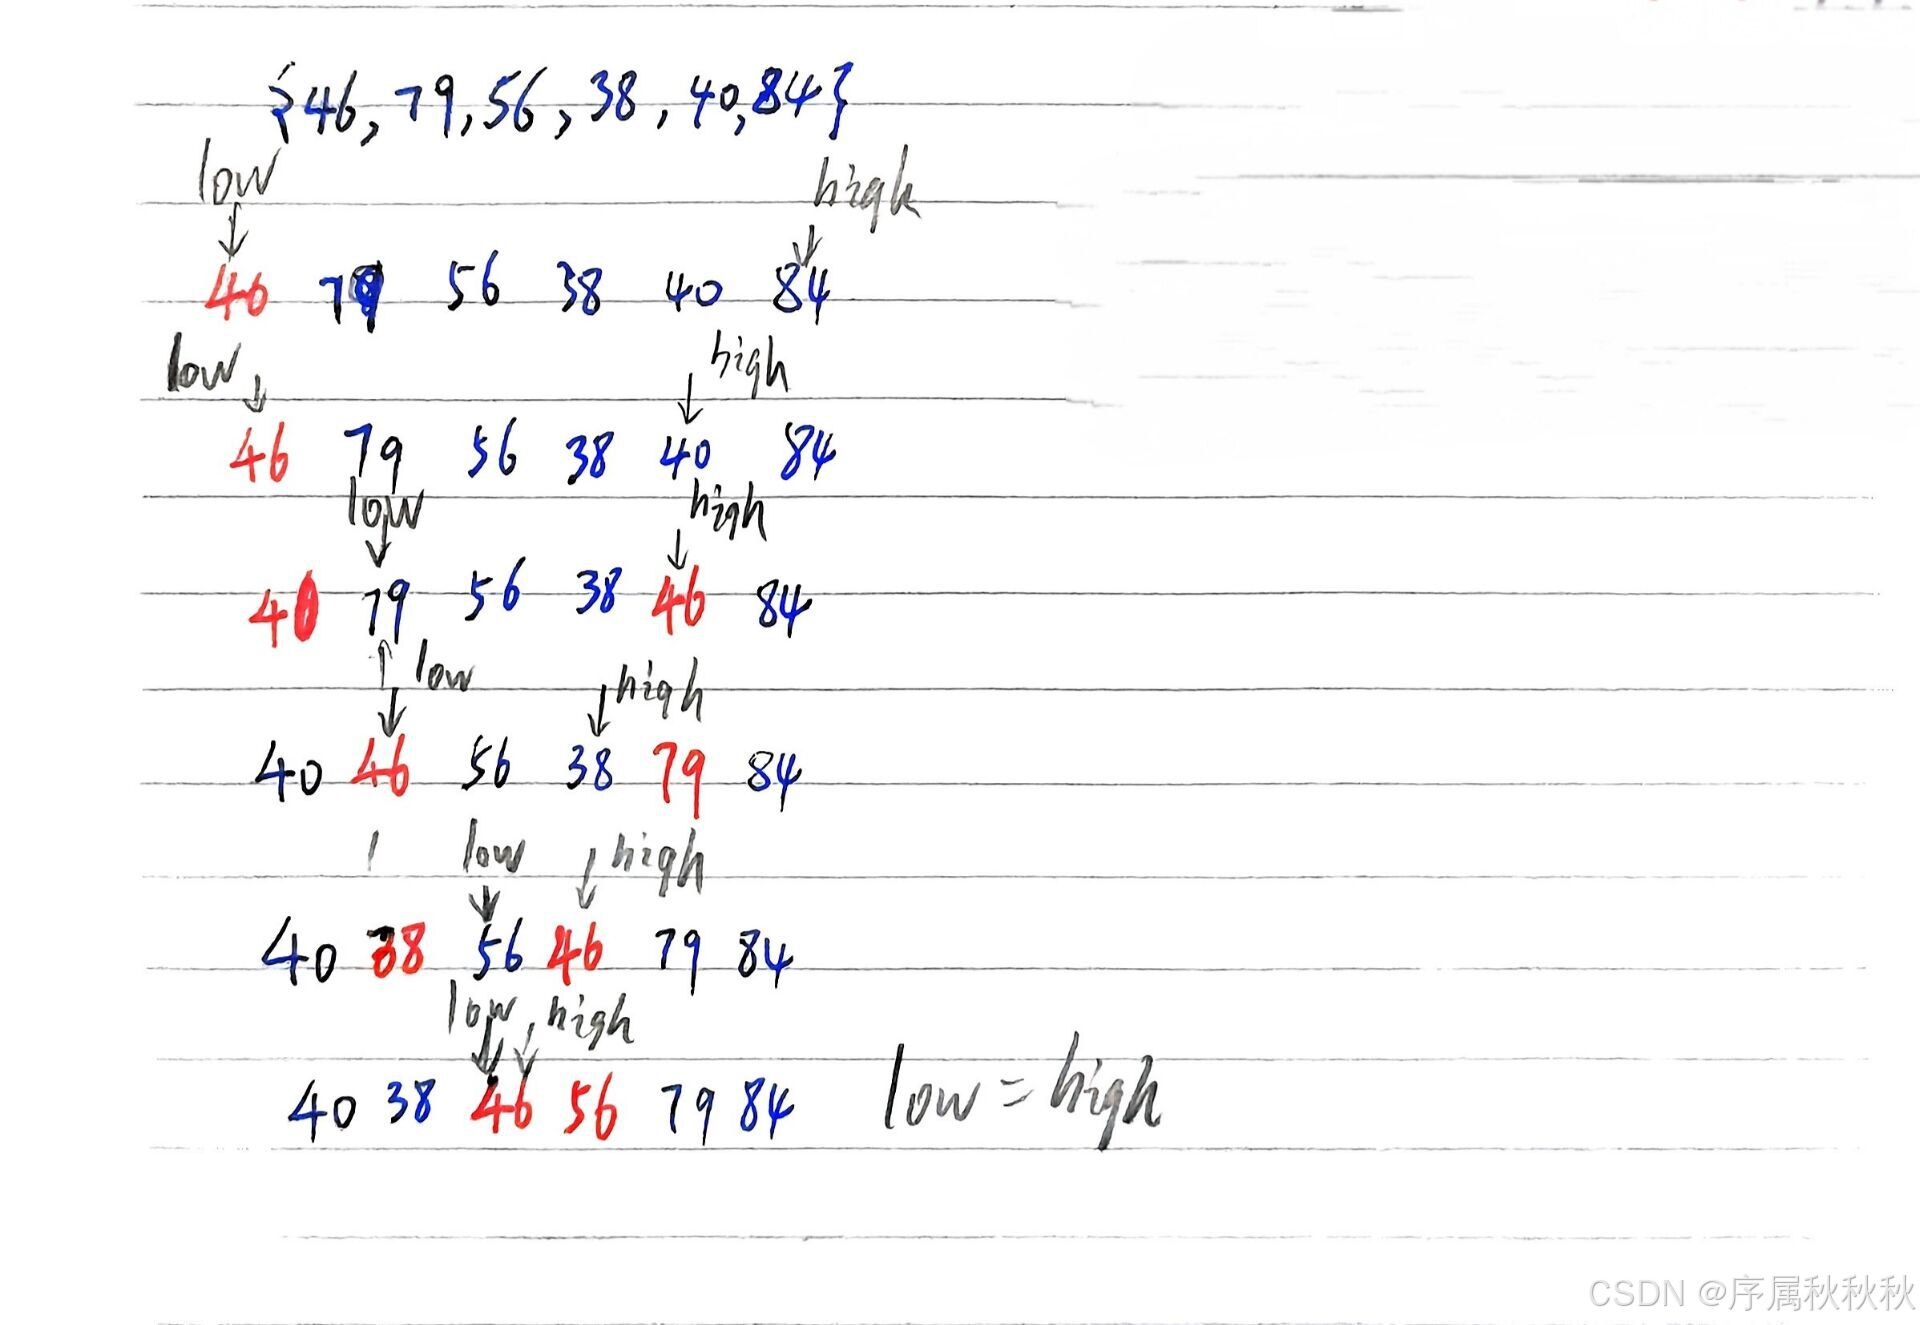 {46, 79, 56, 38, 40, 84}
low high
46 79 56 38 40 84
low high
46 79 56 38 40 84
low high
40 79 56 38 46 84
low high
40 46 56 38 79 84
low high
40 38 56 46 79 84
low high
40 38 46 56 79 84 low = high
CSDN @序属秋秋秋